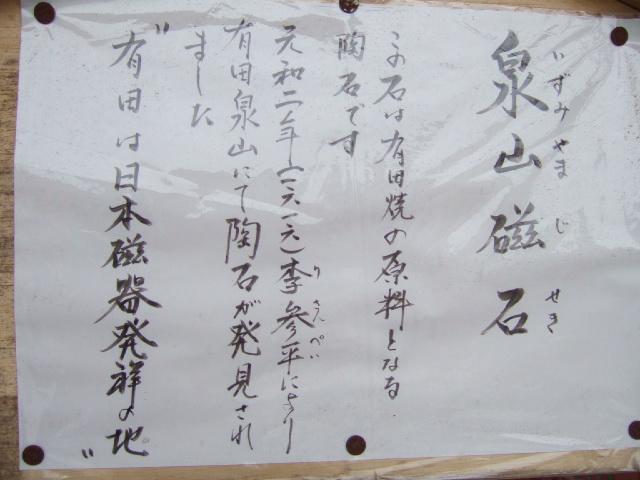 泉山磁石
いずみやま じ せき
この石は有田焼の原料となる
陶石です
元和二年(一六一六)李参平により
り さんぺい
有田泉山にて陶石が発見され
ました
"有田は日本磁器発祥の地"